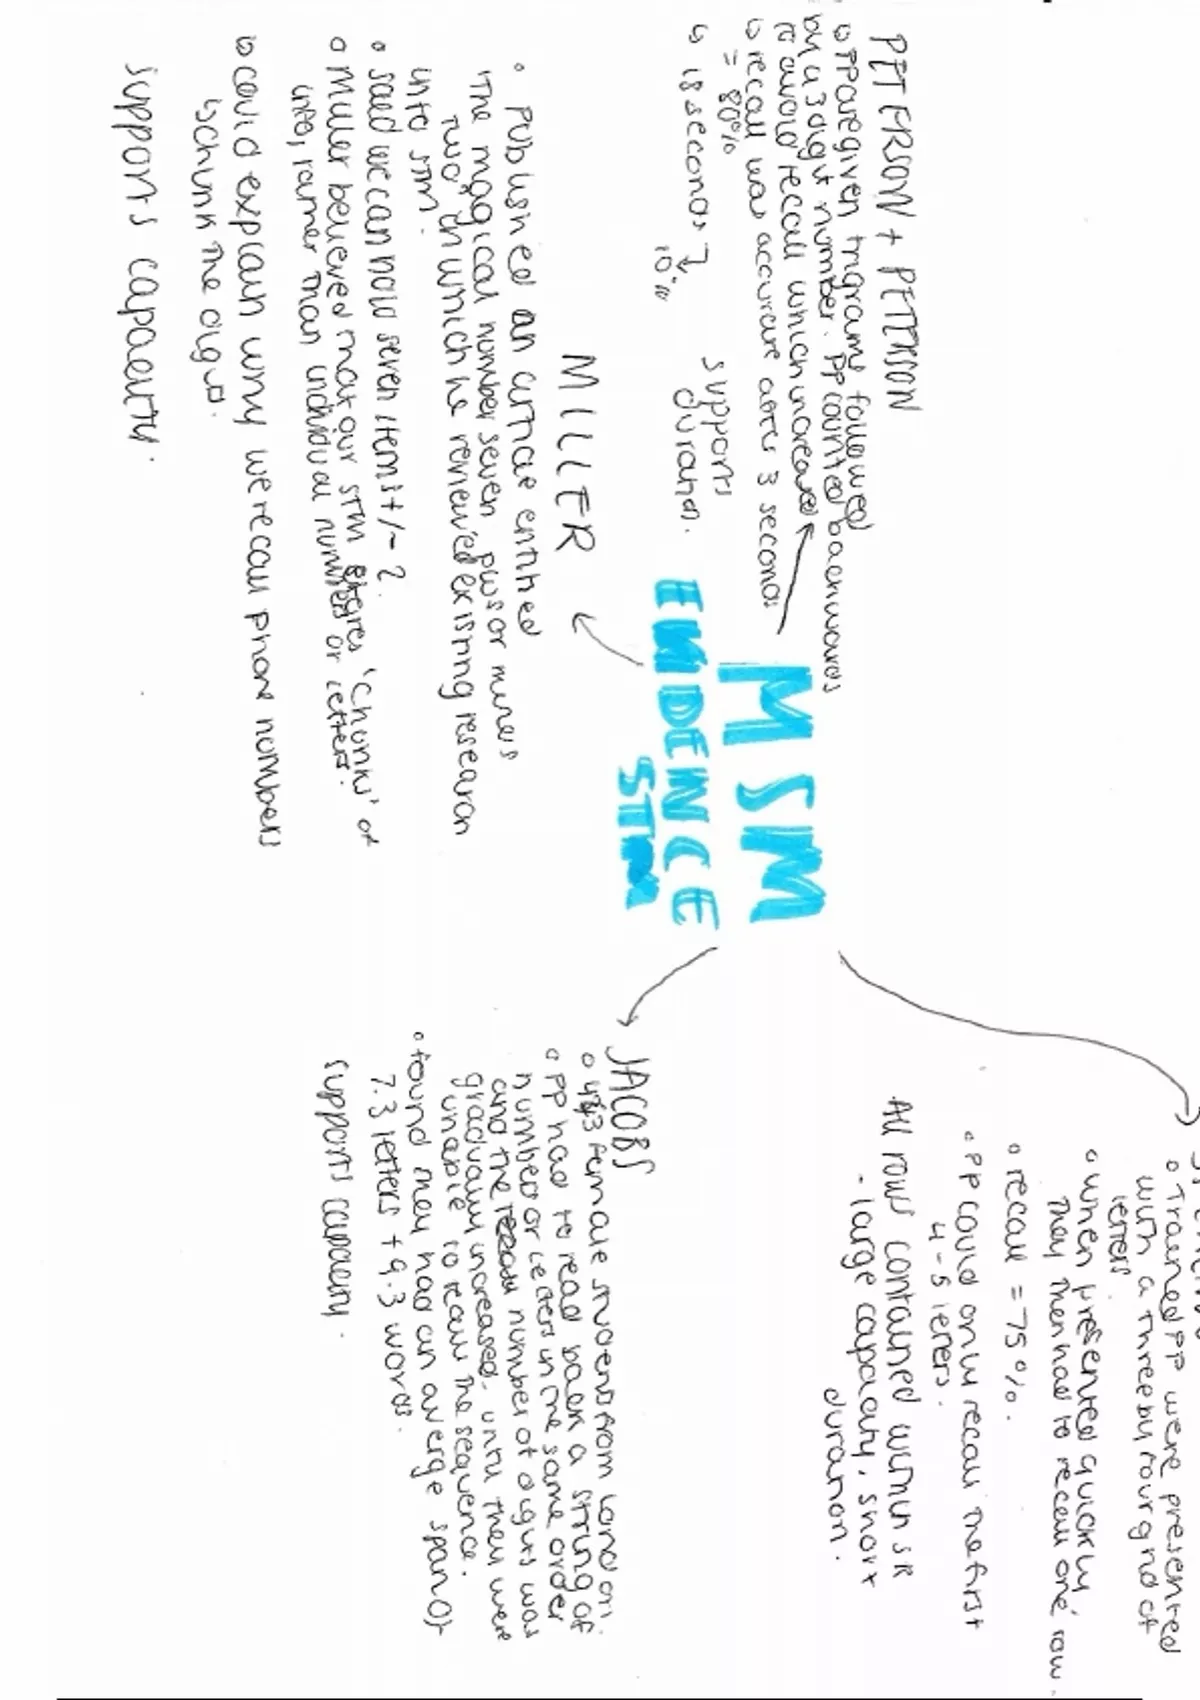 MSM
EVIDENCE
STM
PETERSON + PETERSON
PP are given trigrams followed
by a 3 digit number. PP counted backwards
to avoid recall which increased
recall was accurate after 3 seconds
= 80%
18 seconds
10%
supports
duration.
MILLER
Published an article entitled
'The magical number seven, plus or minus
two' in which he reviewed existing research
into STM.
said we can hold seven items +/- 2.
Miller believed that our STM stores 'chunks' of
info, rather than individual numbers or letters.
could explain why we recall phone numbers
chunk the digits.
supports capacity.
Trained PP were presented
with a three by four grid of
letters
when presented quickly,
they then had to recall one row.
recall = 75%.
PP could only recall the first
4-5 letters.
All rows contained within SR
- large capacity, short
duration.
JACOBS
443 female students from London.
PP had to read back a string of
numbers or letters in the same order
and the number of digits was
gradually increased, until they were
unable to recall the sequence.
found they had an averge span of
7.3 letters + 9.3 words.
supports capacity.